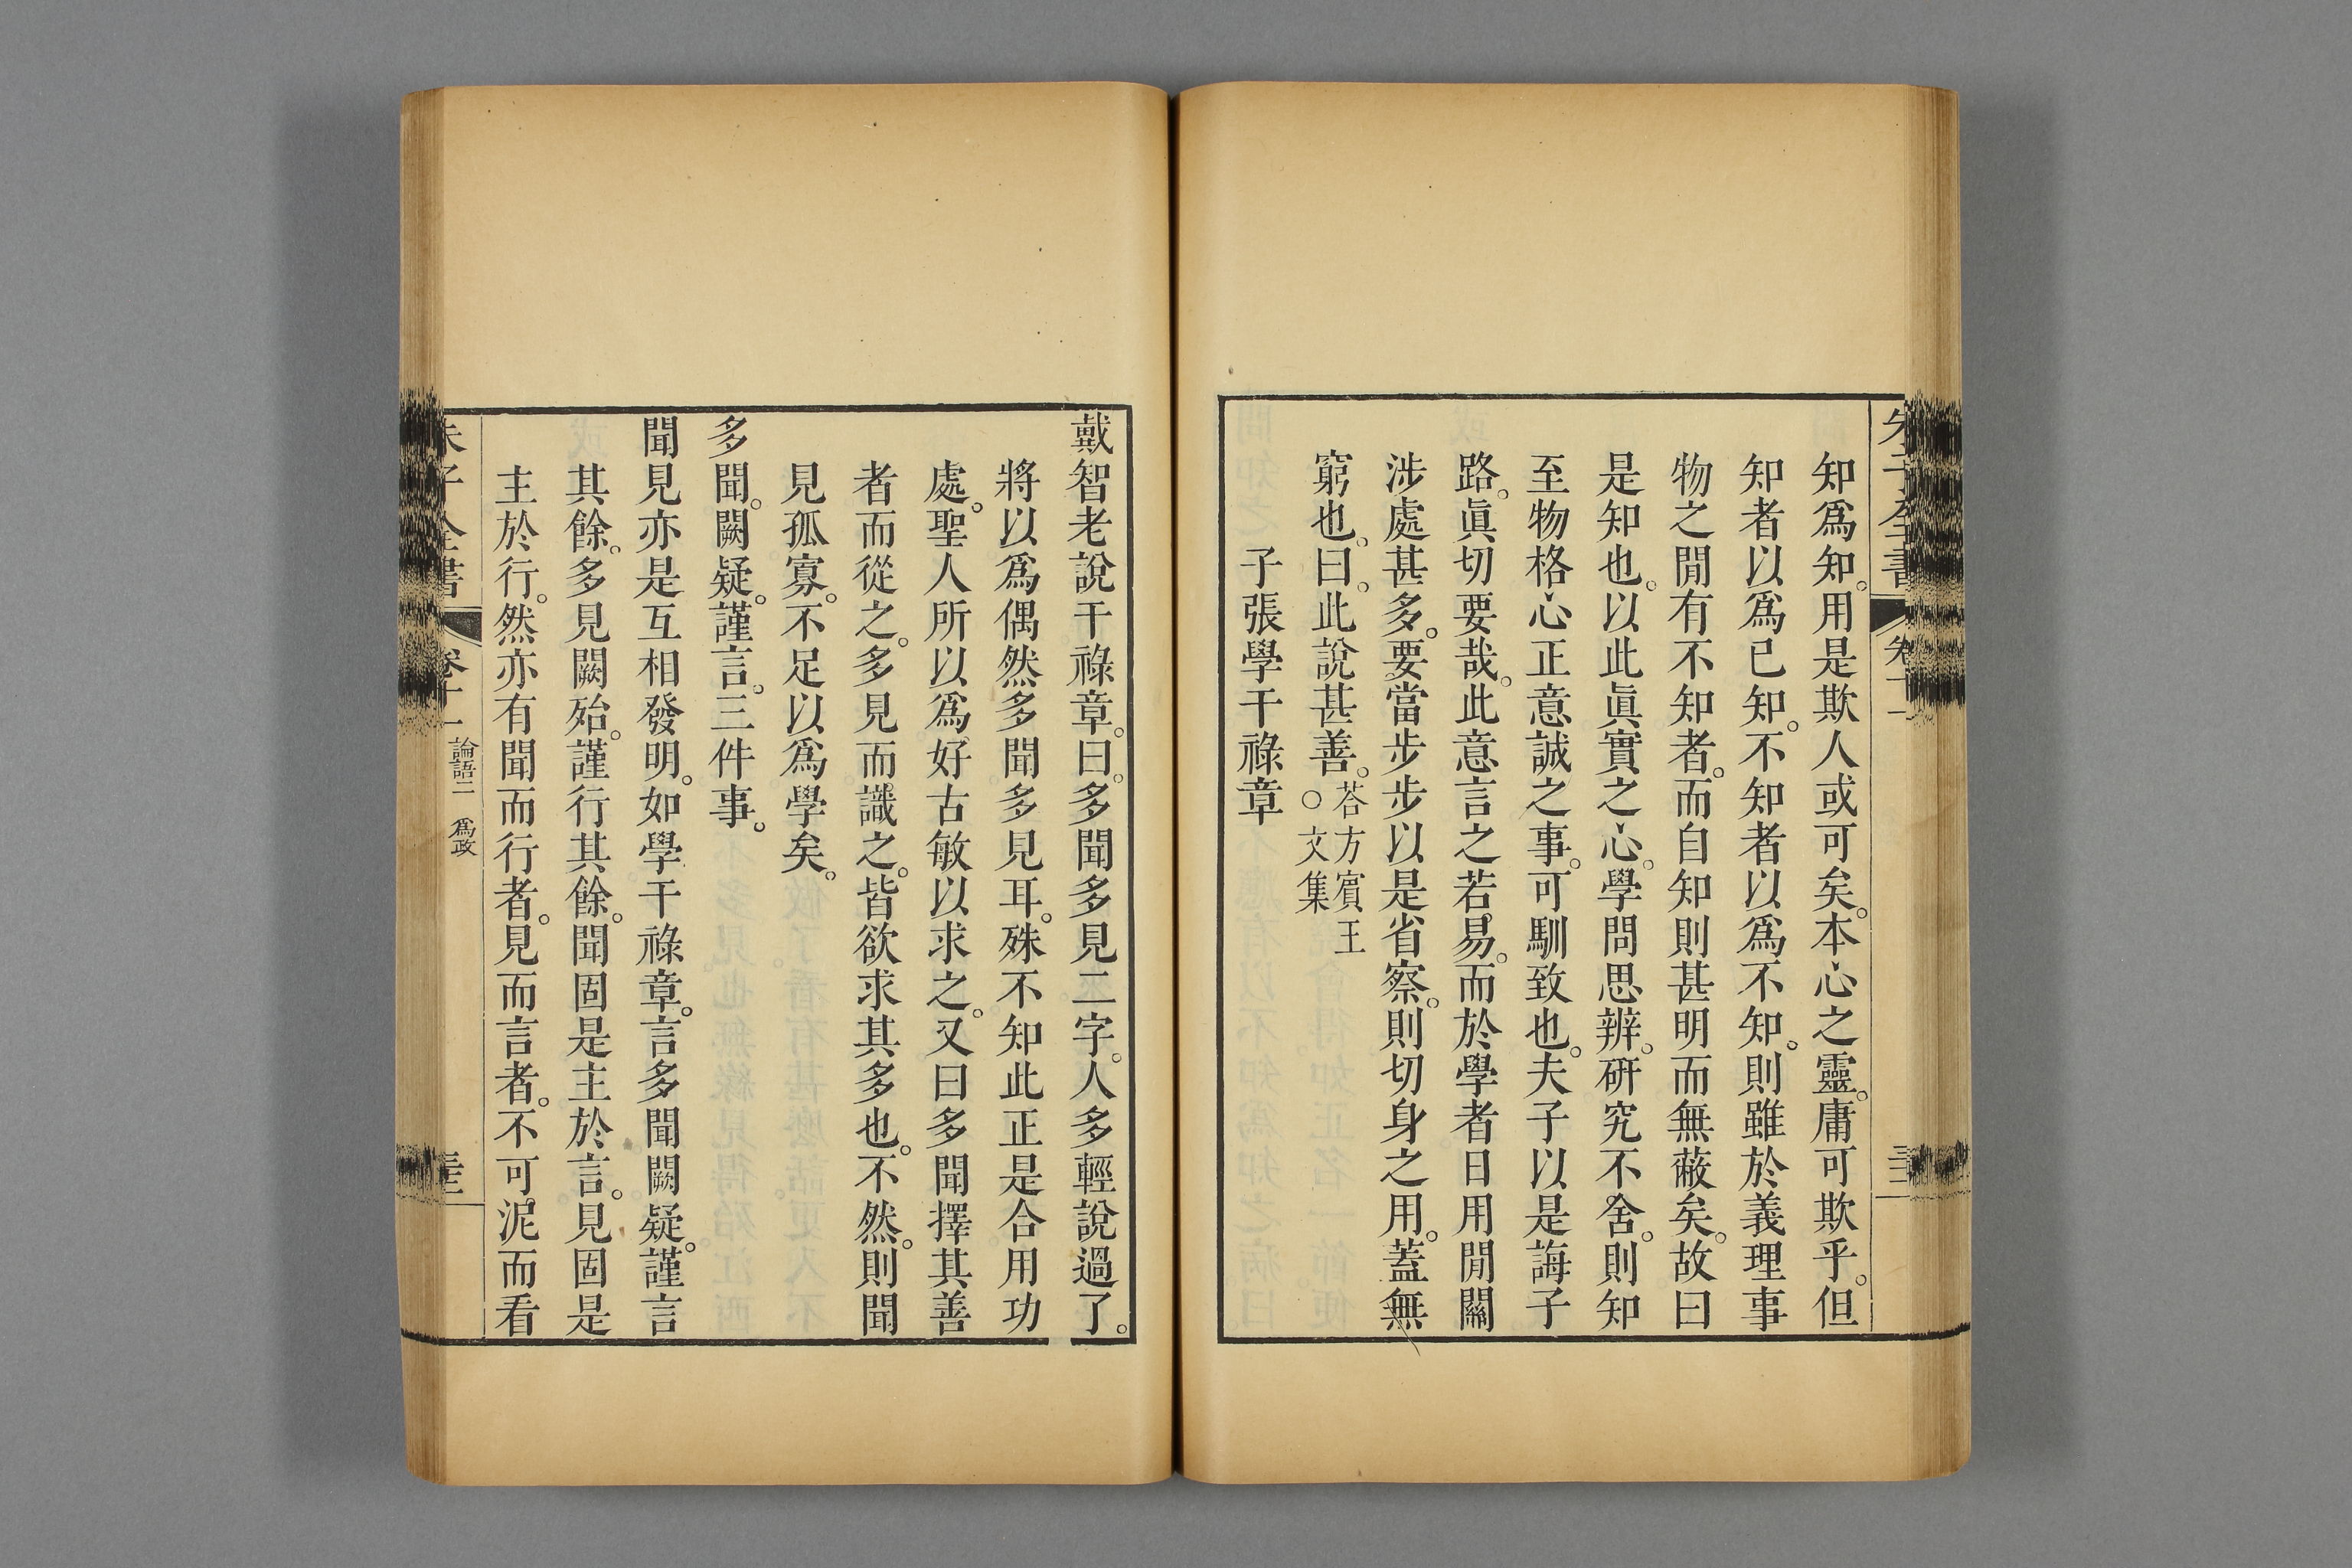 知爲知。用是欺人或可矣。本心之靈。庸可欺乎。但
知者以爲已知。不知者以爲不知。則雖於義理事
物之閒有不知者。而自知則甚明而無蔽矣。故曰
是知也。以此眞實之心。學問思辨。硏究不舍。則知
至物格心正意誠之事。可馴致也。夫子以是誨子
路。眞切要哉。此意言之若易。而於學者日用閒關
涉處甚多。要當步步以是省察。則切身之用。蓋無
窮也。曰。此說甚善。荅方賓王
○文集
子張學干祿章
戴智老說干祿章。曰。多聞多見二字。人多輕說過了。
將以爲偶然多聞多見耳。殊不知此正是合用功
處。聖人所以爲好古敏以求之。又曰多聞擇其善
者而從之。多見而識之。皆欲求其多也。不然。則聞
見孤寡。不足以爲學矣。
多聞。闕疑。謹言。三件事。
聞見亦是互相發明。如學干祿章。言多聞闕疑。謹言
其餘。多見闕殆。謹行其餘。聞固是主於言。見固是
主於行。然亦有聞而行者。見而言者。不可泥而看
論語二 爲政